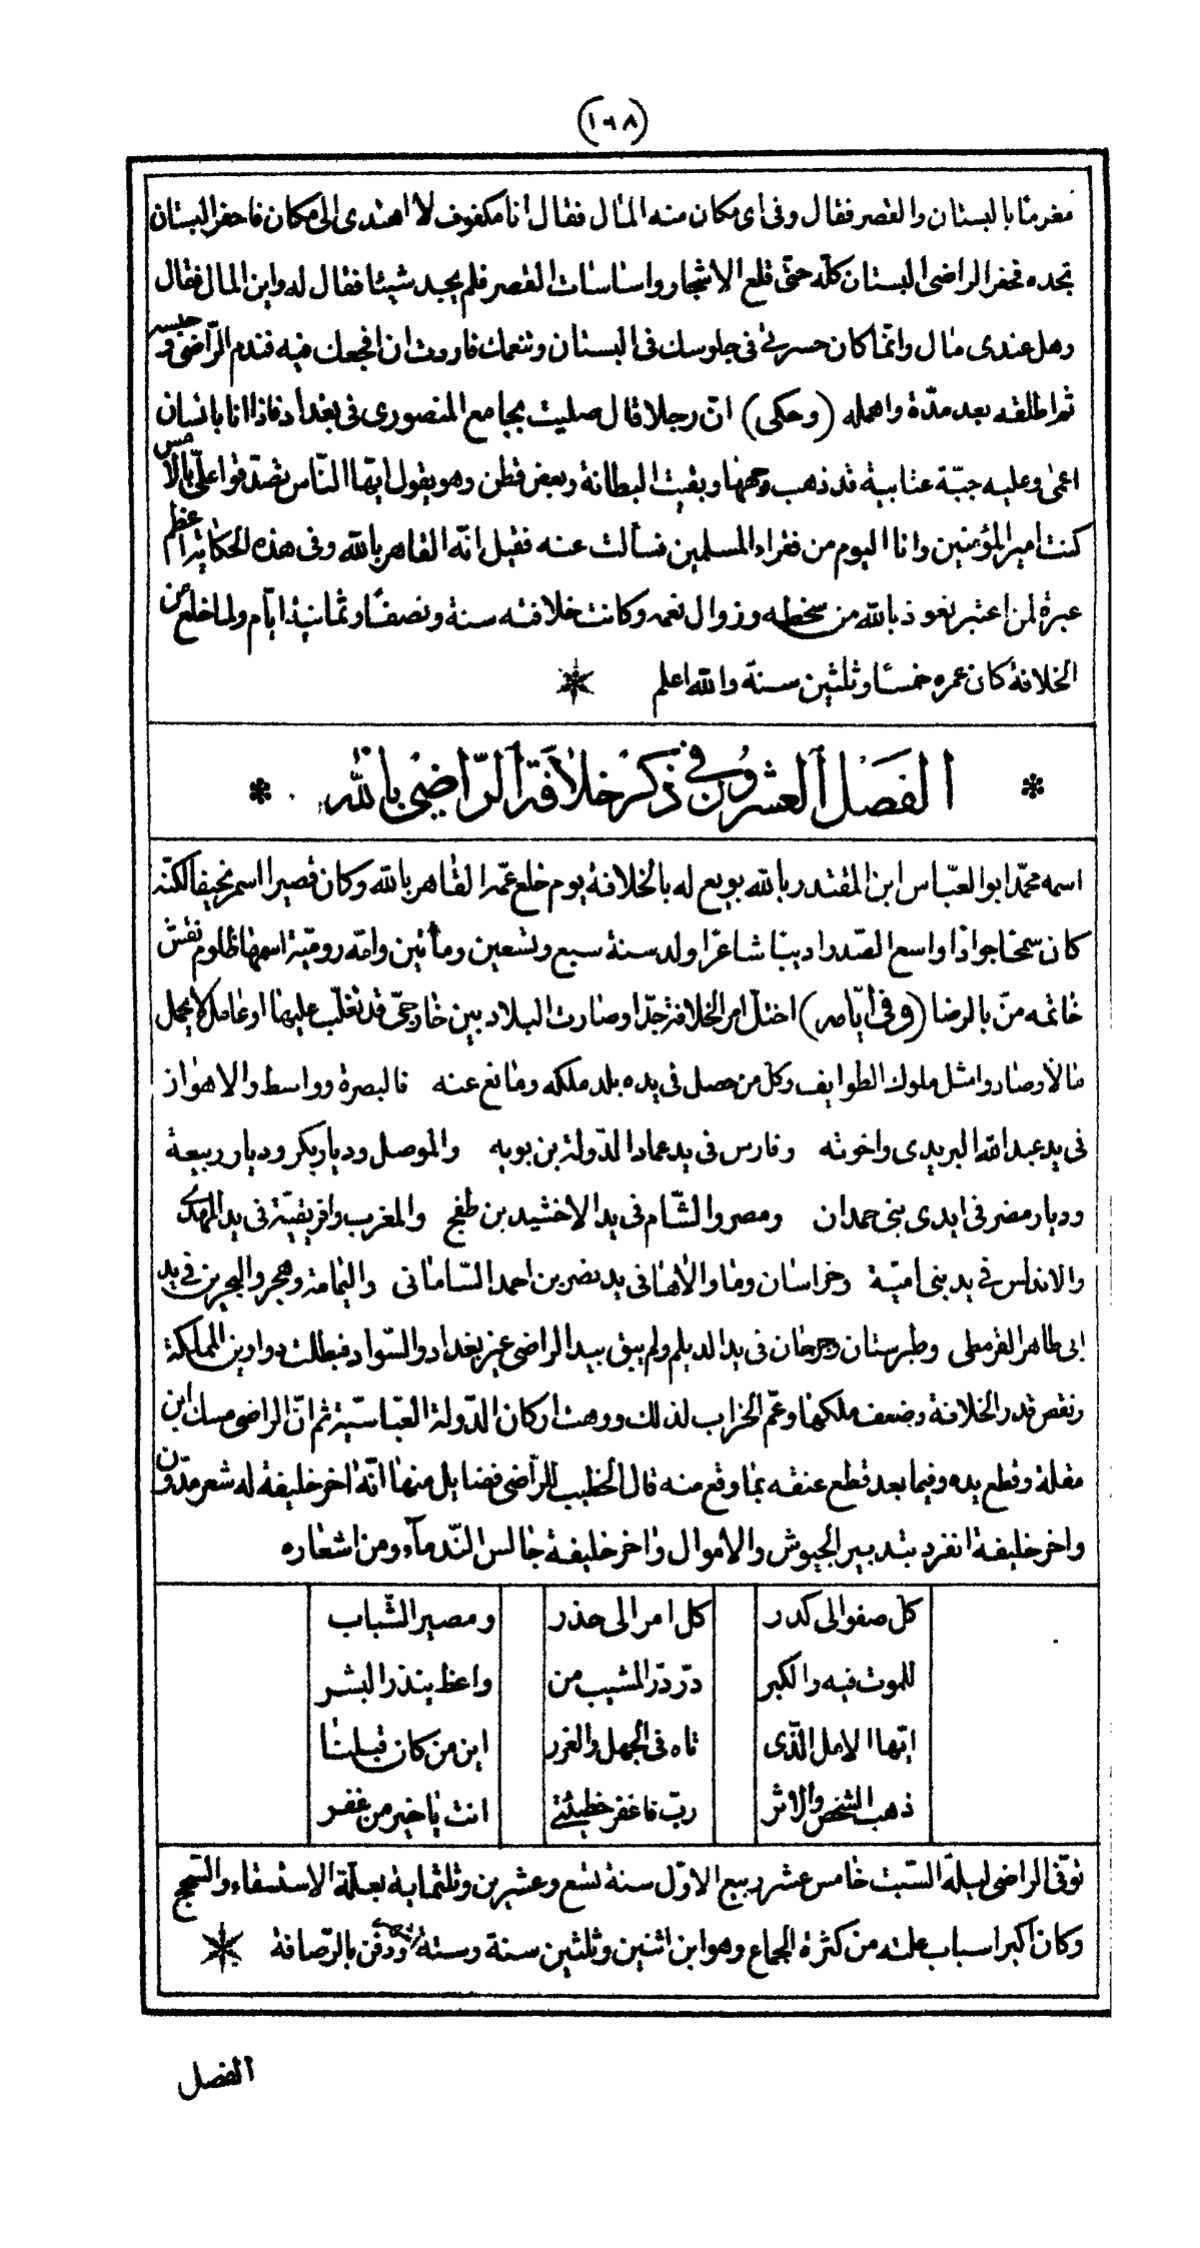 (١٦٨)
مغرما بالبستان والقصر فقال وفى اى مكان منه المال فقال انا مكفوف لا اهتدى الى مكان فاحفر البستان
تجده فحفر الراضى البستان كلّه حتّى قلع الاشجار واساسات القصر فلم يجد شيئا فقال له واين المال فقال
وهل عندى مال وانّما كان حسرتى فى جلوسك فى البستان وتنعمك فاردت ان افجعك فيه فندم الرّاضى وحبسه
ثم اطلقه بعد مدّة واهمله (وحكى) انّ رجلا قال صليت بجامع المنصورى فى بغداد فاذا انا بانسان
اعمى وعليه جبّة عنابية قد ذهب وجهها وبقيت البطانة وبعض قطن وهو يقول ايّها النّاس تصدّقوا علىّ بالامس
كنت امير المؤمنين وانا اليوم من فقراء المسلمين فسألت عنه فقيل انّه القاهر بالله وفى هذه الحكاية اعظم
عبرة لمن اعتبر نعوذ بالله من سخطه وزوال نعمه وكانت خلافته سنة ونصفا وثمانية ايّام ولما خلع من
الخلافة كان عمره خمسا وثلثين سنة والله اعلم
* الفصل العشرون فى ذكر خلافة الرّاضى بالله *
اسمه محمّد ابو العبّاس ابن المقتدر بالله بويع له بالخلافة يوم خلع عمّه القاهر بالله وكان قصيرا اسمر نحيفا لكنّه
كان سمحا جوادا واسع الصّدر اديبا شاعرا ولد سنة سبع وتسعين ومأتين وامّه روميّة اسمها ظلوم نقش
خاتمه منّ بالرضا (وفى ايّامه) اختلّ امر الخلافة جدّا وصارت البلاد بين خارجىّ قد تغلّب عليها او عامل لا يحمل
مالا وصاروا مثل ملوك الطوايف وكل من حصل فى يده بلد ملكه ومانع عنه فالبصرة وواسط والاهواز
فى يد عبد الله البريدى واخوته وفارس فى يد عماد الدّولة بن بويه والموصل وديار بكر وديار ربيعة
وديار مضر فى ايدى بنى حمدان ومصر والشّام فى يد الاخشيد بن طغج والمغرب وافريقيّة فى يد المهدى
والاندلس فى يد بنى اميّة وخراسان وما والاها فى يد نصر بن احمد السّامانى واليمامة وهجر والبحرين فى يد
ابى طاهر القرمطى وطبرستان وجرجان فى يد الديلم ولم يبق بيد الراضى غير بغداد والسّواد فبطلت دواوين المملكة
ونقص قدر الخلافة وضعف ملكها وعمّ الخراب لذلك ووهت اركان الدّولة العبّاسيّة ثم انّ الراضى مسك ابن
مقلة وقطع يده وفيما بعد قطع عنقه بما وقع منه قال الخطيب للرّاضى فضايل منها انّه اخر خليفة له شعر مدّون
واخر خليفة انفرد بتدبير الجيوش والاموال واخر خليفة جالس النّدمآء ومن اشعاره
كلّ صفو الى كدر كل امر الى حذر ومصير الشّباب
للموت فيه والكبر درّ درّ المشيب من واعظ ينذر البشر
ايّها الامل الذّى تاه فى الجهل والغرر اين من كان قبلنا
ذهب الشخص والاثر ربّ فاغفر خطيئتى انت يا خير من غفر
توفّى الراضى ليلة السّبت خامس عشر ربيع الاوّل سنة تسع وعشرين وثلثمائة بعلّة الاستسقاء والتسجج
وكان اكبر اسباب علته من كثرة الجماع وهو ابن اثنين وثلثين سنة وستة اشهر ودفن بالرّصافة
الفصل